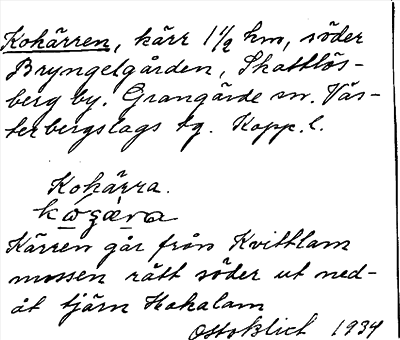 Kohärren, kärr 1 1/2 km, söder
Bryngelgården, Skattlös-
berg by. Grangärde sn. Väs-
terbergslags tg. Kopp. l.
Kohärra.
Kärren går från Kvittlam
mossen rätt söder ut ned-
åt tjärn Hokalam
Otto Blixt 1934